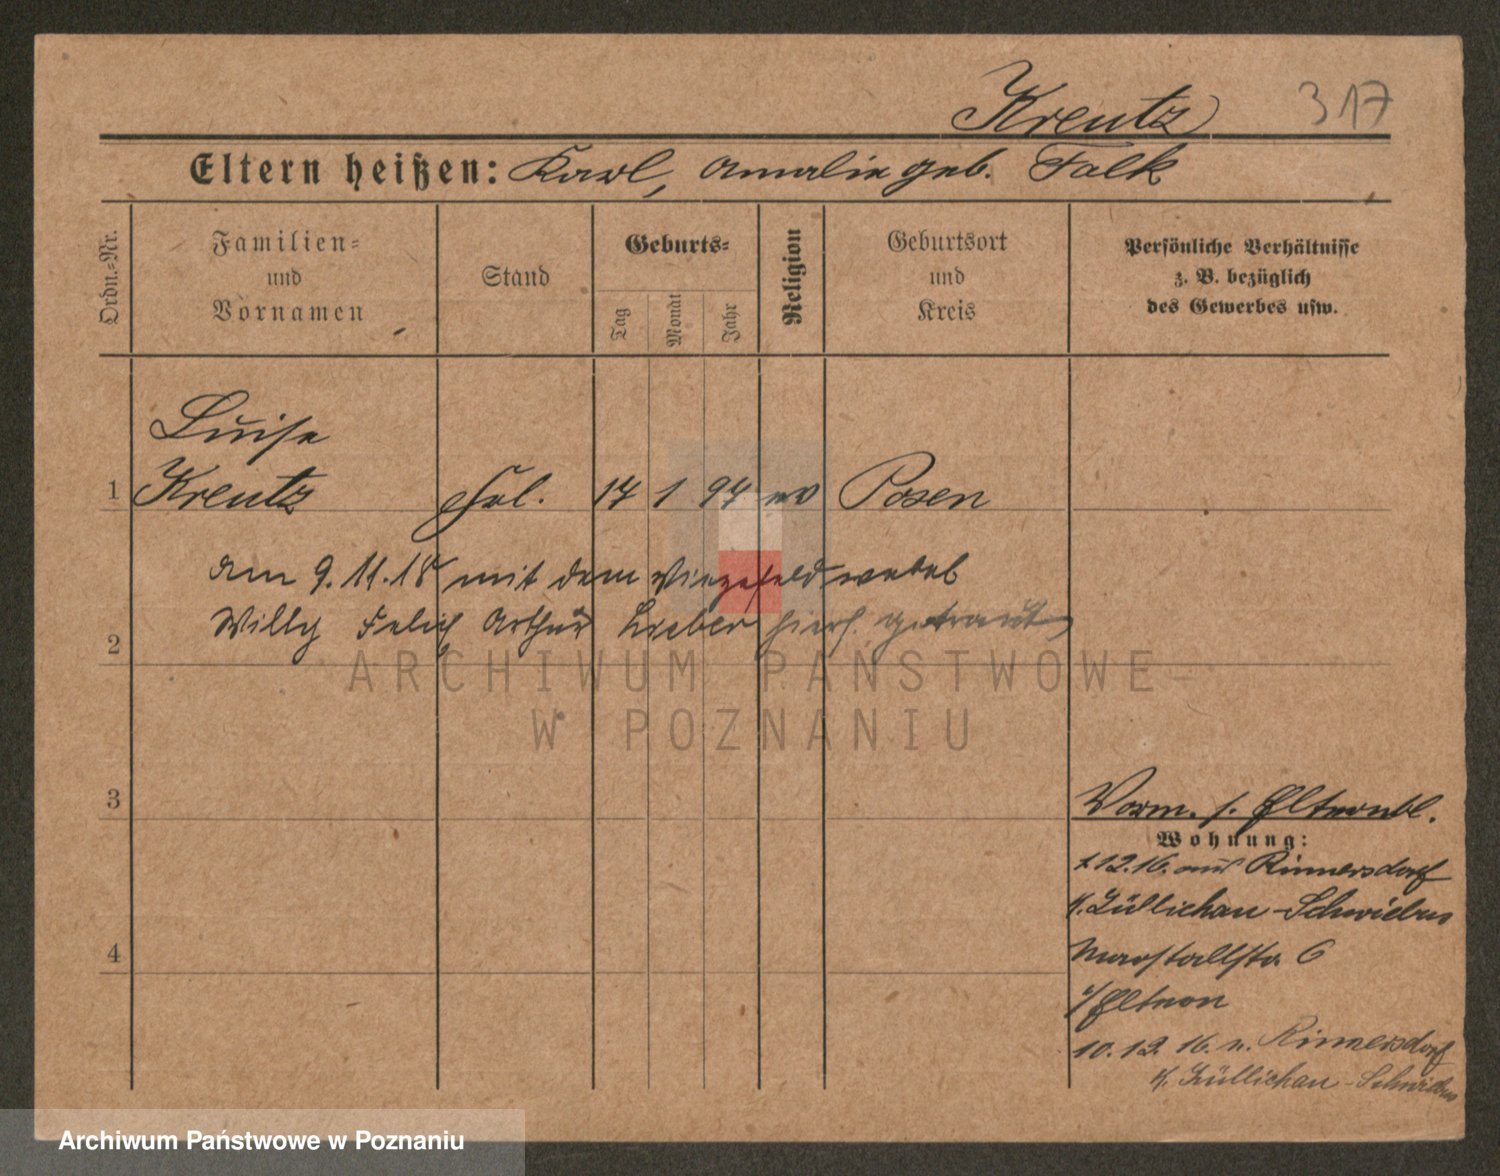 Kreutz 317
Eltern heißen: Karl, Amalie geb. Falk
Ordn.-Nr.
Familien-
und
Vornamen
Stand
Geburts-
Tag
Monat
Jahr
Religion
Geburtsort
und
Kreis
Persönliche Verhältnisse
z. B. bezüglich
des Gewerbes usw.
Luise
1 Kreutz Frl. 14 1 94 ev Posen
am 9.11.18 mit dem Vizefeldwebel
2 Willy Felix Arthur hier getraut
ARCHIWUM PAŃSTWOWE
W POZNANIU
3
Vorm. s. Elternbl.
Wohnung:
1.12.16. aus Rinnersdorf
K. Züllichau-Schwiebus
4
Marstallstr. 6
b/Eltern
10.12.16. n. Rinnersdorf
K. Züllichau-Schwiebus
Archiwum Państwowe w Poznaniu